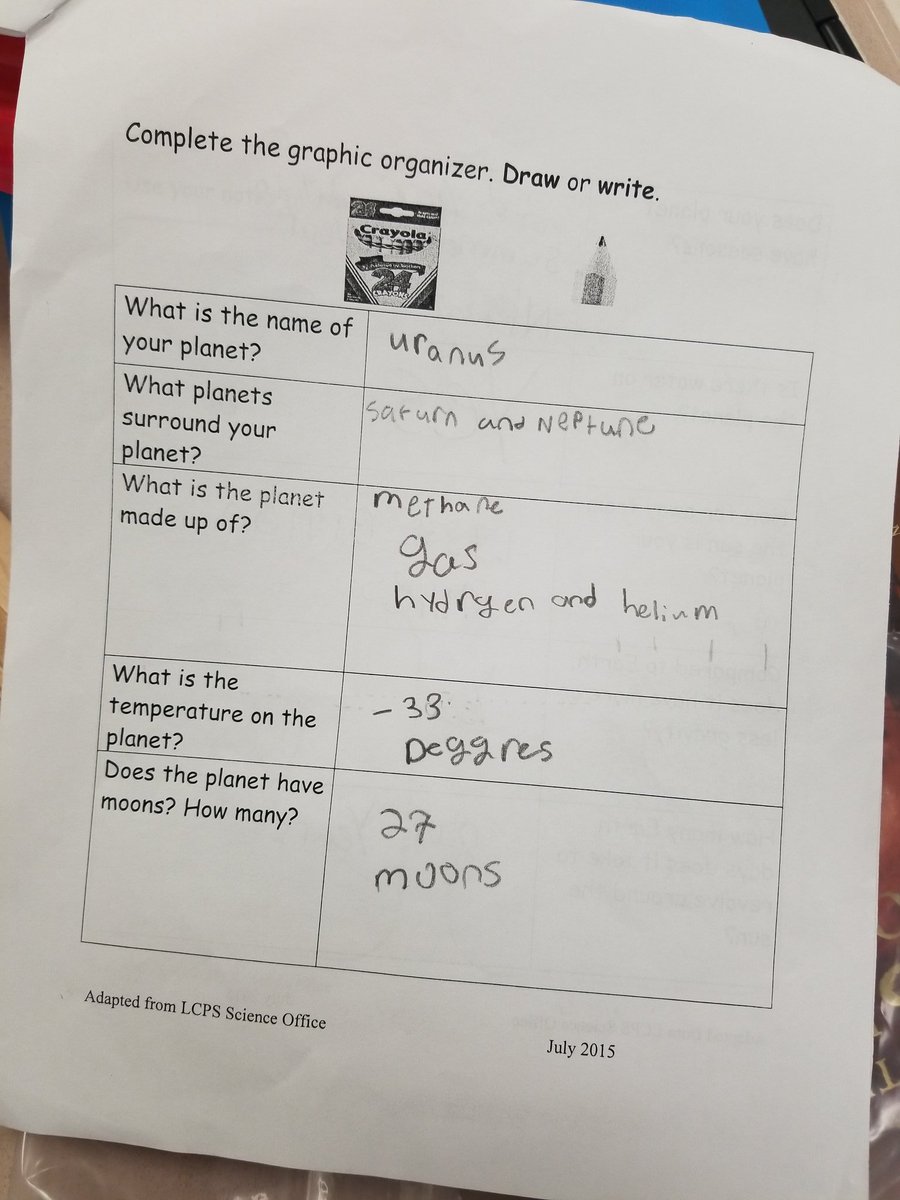 Complete the graphic organizer. Draw or write.
Crayola
24
CRAYONS
What is the name of
your planet?
uranus
What planets
surround your
planet?
saturn and Neptune
What is the planet
made up of?
methane
gas
hydrgen and helium
What is the
temperature on the
planet?
- 33
Deggres
Does the planet have
moons? How many?
27
moons
Adapted from LCPS Science Office
July 2015